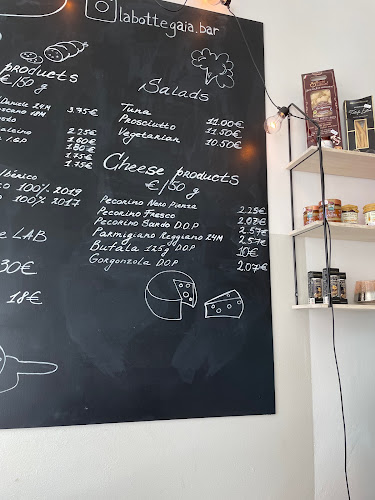 labottegaia.bar
products
€/50 g
Daniele 24M 3.75€
oscano 18M
2.25€
1.60€
1.60€
1.75€
1.75€
Ibérico
100% 2019
100% 2017
LAB
30€
18€
Salads
Tuna 11.00€
Prosciutto 11.50€
Vegetarian 10.50€
Cheese products
€/50 g
Pecorino Nero Pienza 2.25€
Pecorino Fresco 2.07€
Pecorino Sardo D.O.P 2.57€
Parmigiano Reggiano 24M 2.57€
Bufala 125g D.O.P 10€
Gorgonzola D.O.P 2.07€